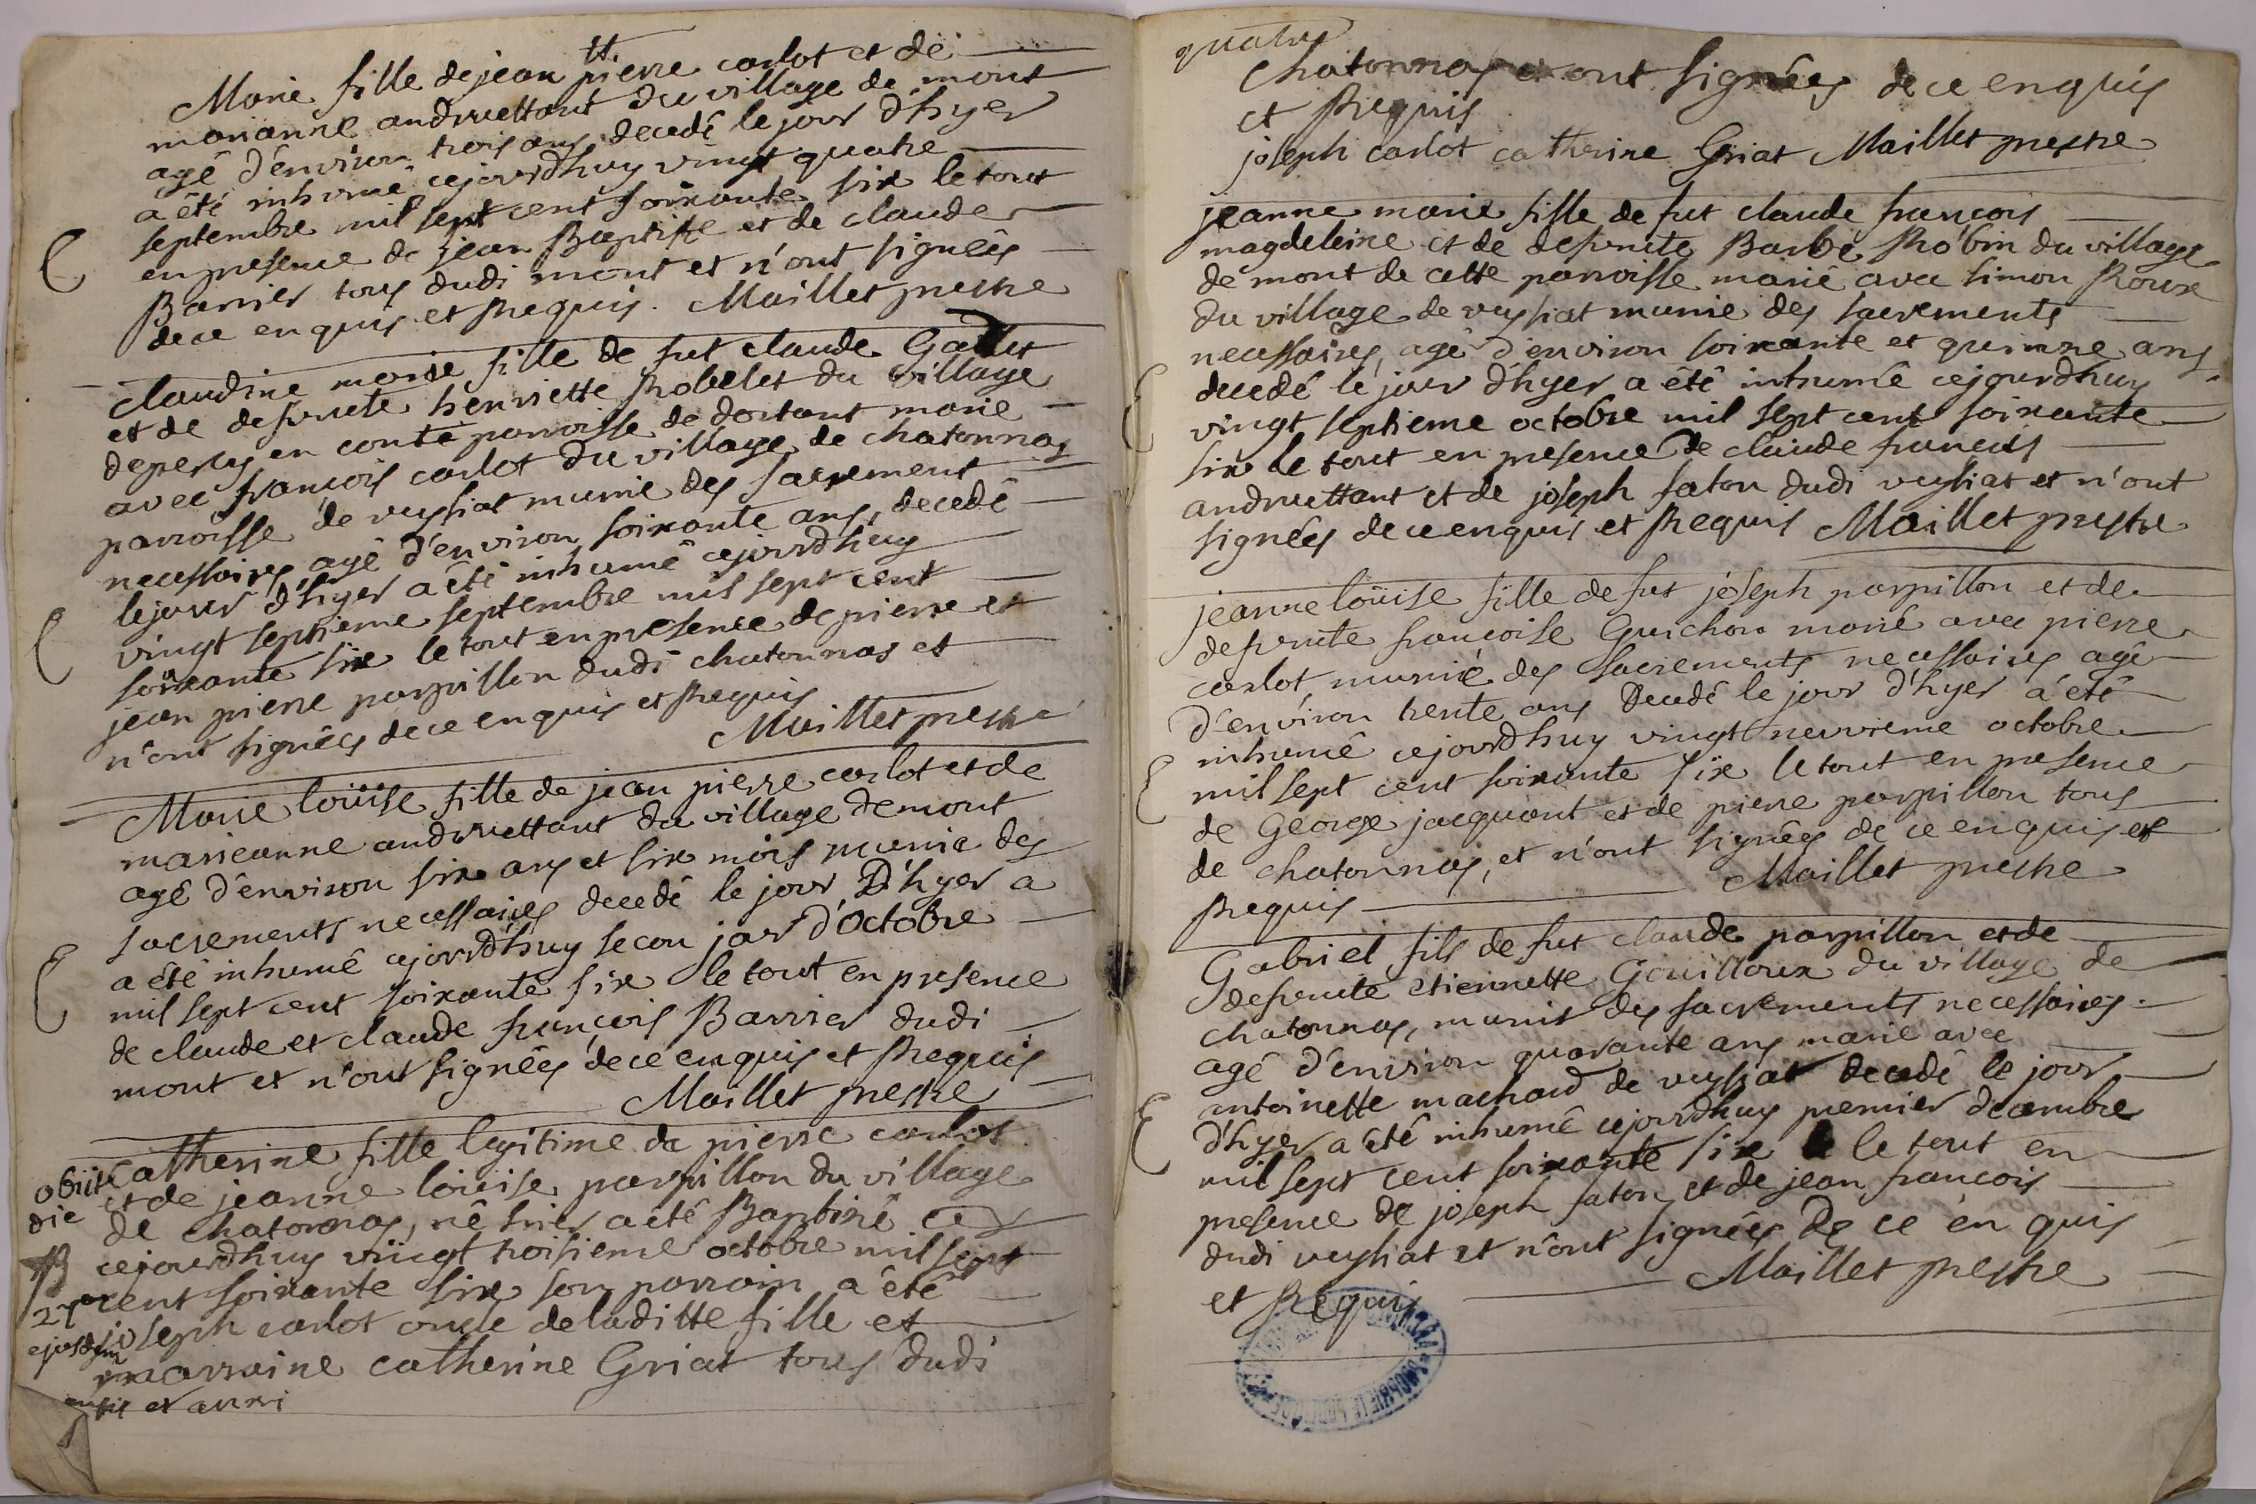 Marie fille de jean pierre carlot et de
marianne andruettant du village de mont
agé d'environ trois ans decedé le jour d'hyer
a été inhumé cejourdhuy vingt quatre
septembre mil sept cent soixante six le tout
en presence de jean Baptiste et de claude
Barrier tous dudi mont et n'ont signéés
de ce enquis et Requis. Maillet prestre
claudine marie fille de fut claude Gallet
et de defunte henriette Robelet du village
de percy en conté paroisse de dortant marié
avec francois carlot du village de chatonnas
parroisse de veysiat munie des sacrement
necessaires agé d'environ soixante ans, decedé
le jour d'hyer a été inhumé cejourdhuy
vingt septieme septembre mil sept cent
soixante six le tout en presence de pierre et
jean pierre parpillon dudi chatonnas et
n'ont signéés de ce enquis et Requis
Maillet prestre
Marie loüise fille de jean pierre carlot et de
marieanne andruettant du village de mont
agé d'environ six ans et six mois munie des
sacrements necessaires decedé le jour D'hyer a
a été inhumé cejourdhuy secon jour d'Octobre
mil sept cent soixante six le tout en presence
de claude et claude françois Barrier dudi
mont et n'ont signéés de ce enquis et Requis
Maillet prestre
catherine fille legitime de pierre carlot
et de jeanne loüise parpillon du village
de chatonnas, né hier a été Baptizé ce
cejourdhuy vingt troisieme octobre mil sept
cent soixante six son parrain a été
joseph carlot oncle de laditte fille et
marraine catherine Griat tous dudi
obiit
die
27
ejusdem
mensis et anni
quatre
chatonnas ont signéés de ce enquis
et Requis
joseph carlot catherine Griat Maillet prestre
jeanne marie fille de fut claude françois
magdeleine et de defunte Barbe Robin du village
de mont de cette parroisse marié avec simon Roux
du village de veysiat munie des sacrements
necessaires, agé d'environ soixante et quinze ans
decedé le jour d'hyer a été inhumé cejourdhuy
vingt septieme octobre mil sept cent soixante
six le tout en presence de claude francois
andruettant et de joseph saton dudi veysiat et n'ont
signéés de ce enquis et Requis Maillet prestre
jeanne loüise fille de fut joseph parpillon et de
defunte francoise Guichon marié avec pierre
carlot, munie des sacrements necessaires agé
d'environ trente ans Decedé le jour d'hyer a été
inhumé cejourdhuy vingt neuvieme octobre
mil sept cent soixante six le tout en presence
de George jacquant et de pierre parpillon tous
de chatonnas, et n'ont signéés de ce enquis et
Requis Maillet prestre
Gabriel fils de fut claude parpillon et de
defunte etiennette Gouilloux du village de
chatonnas, munis des sacrements necessaires
agé d'environ quarante ans marié avec
antoinette machard de veysiat decedé le jour
d'hyer a été inhumé cejourdhuy premier decembre
mil sept cent soixante six le tout en
presence de joseph saton et de jean francois
dudi veysiat et n'ont signéés De ce en quis
et Requis Maillet prestre